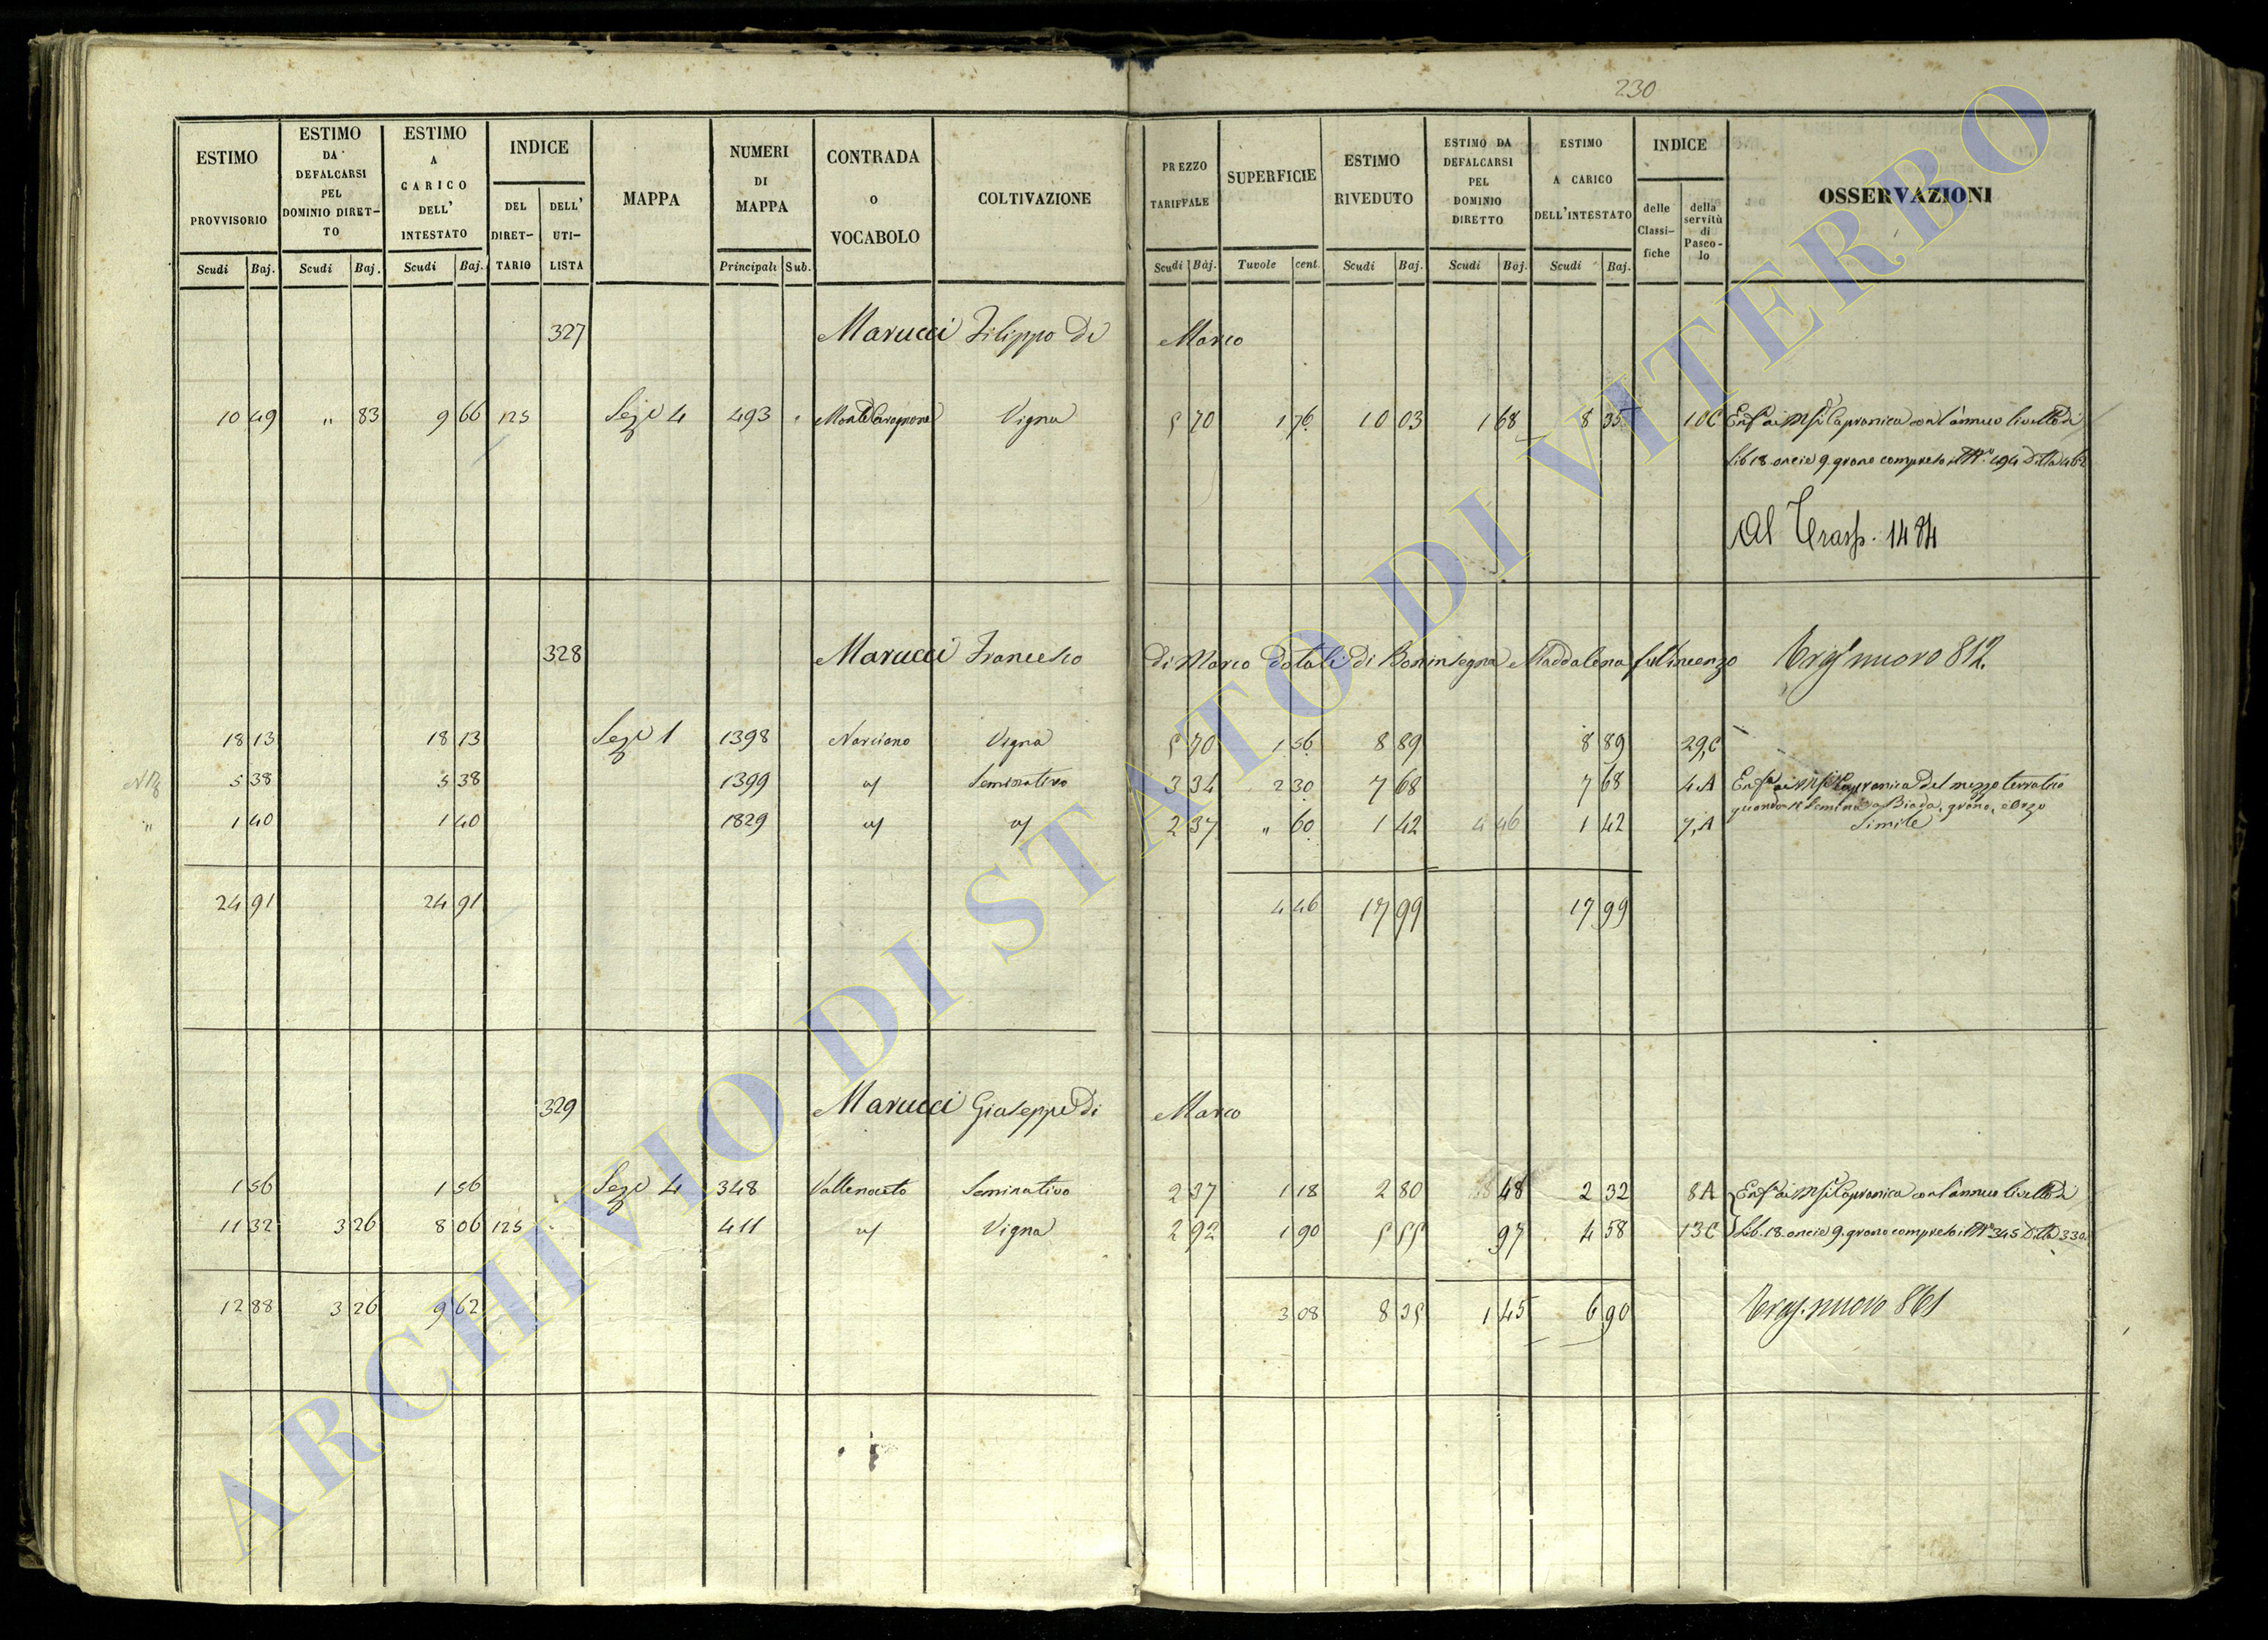 230
ESTIMO PROVVISORIO | ESTIMO DA DEFALCARSI PEL DOMINIO DIRETTO | ESTIMO A CARICO DELL' INTESTATO | INDICE DEL DIRETTARIO | DELL' UTILISTA | MAPPA | NUMERI DI MAPPA | CONTRADA o VOCABOLO | COLTIVAZIONE | PREZZO TARIFFALE | SUPERFICIE | ESTIMO RIVEDUTO | ESTIMO DA DEFALCARSI PEL DOMINIO DIRETTO | ESTIMO A CARICO DELL'INTESTATO | INDICE delle Classifiche | della servitù di Pascolo | OSSERVAZIONI
Scudi Baj. Scudi Baj. Scudi Baj. Principali Sub. Scudi Baj. Tavole cent. Scudi Baj. Scudi Baj. Scudi Baj.
327 Marucci Filippo di Marco
10 49 " 83 9 66 125 Sez.e 4 493 Vigna 5 70 1 76 10 03 1 68 8 35 10C Enf. ai Capranica con l'annuo livello di
Lib 18 oncie 9 grano compreso il N.o 494 Ditta 462
Al Trasp. 1484
328 Marucci Francesco di Marco dotali di Boninsegna Maddalena fu Vincenzo nuovo 812
18 13 18 13 Sez.e 1 1398 Narciano Vigna 5 70 1 56 8 89 8 89 29,C
5 38 5 38 1399 Seminativo 3 34 2 30 7 68 7 68 4,A Enf.a ai Capranica del mezzo terratico
quando si semina a Biada, grano, e Orzo
" 1 40 1 40 1829 2 37 " 60 1 42 4 46 1 42 7,A Simile
24 91 24 91 4 46 17 99 17 99
329 Marucci Giuseppe di Marco
1 56 1 56 Sez.e 4 348 Vallenoceto Seminativo 2 37 1 18 2 80 48 2 32 8A Enf. ai Capranica con l'annuo livello di
11 32 3 26 8 06 125 411 Vigna 2 92 1 90 5 55 97 4 58 13C Lib. 18 oncie 9 grano compreso il N.o 345 Ditta 330
12 88 3 26 9 62 3 08 8 35 1 45 6 90 nuovo 861
ARCHIVIO DI STATO DI VITERBO